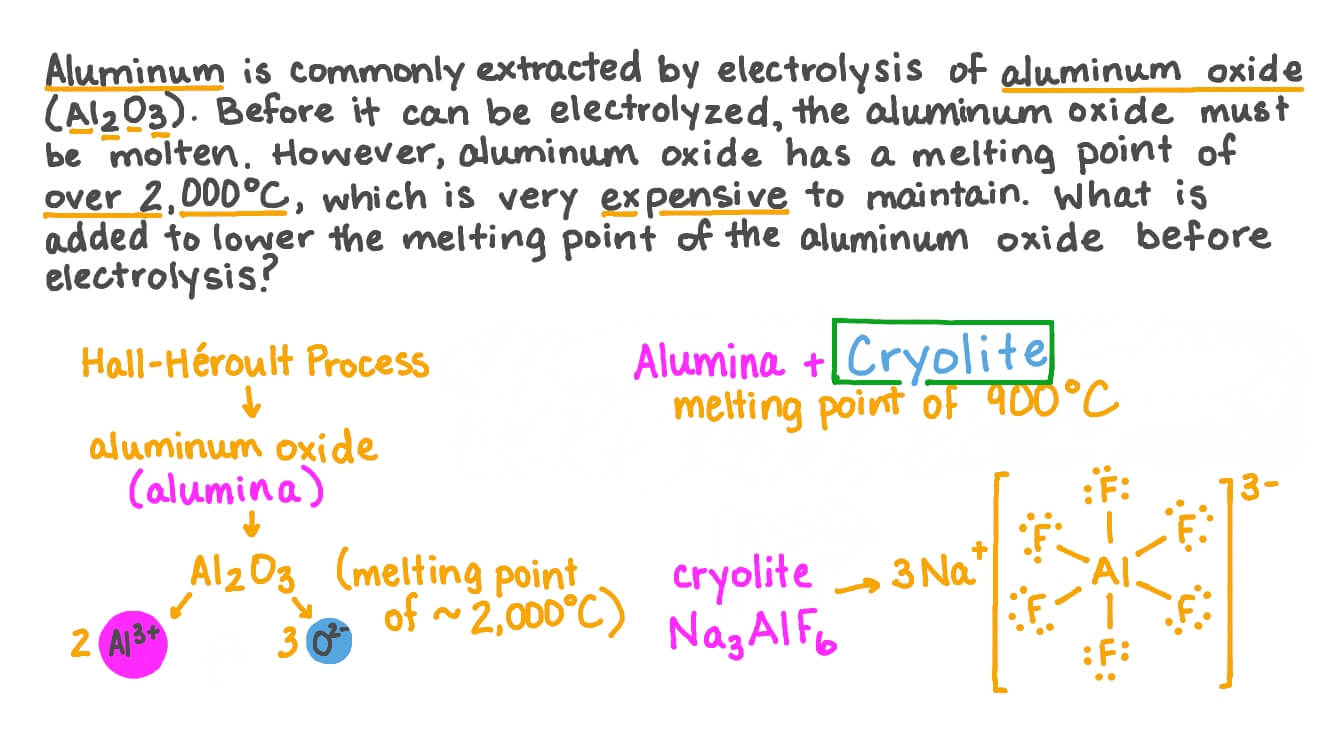 Aluminum is commonly extracted by electrolysis of aluminum oxide
(Al₂O₃). Before it can be electrolyzed, the aluminum oxide must
be molten. However, aluminum oxide has a melting point of
over 2,000°C, which is very expensive to maintain. What is
added to lower the melting point of the aluminum oxide before
electrolysis?
Hall-Héroult Process
↓
aluminum oxide
(alumina)
↓
Al₂O₃ (melting point
of ~2,000°C)
2 Al³⁺ 3 O²⁻
Alumina + Cryolite
melting point of 900°C
cryolite → 3Na⁺
Na₃AlF₆
[:F:
F F
Al
F F
:F:]³⁻